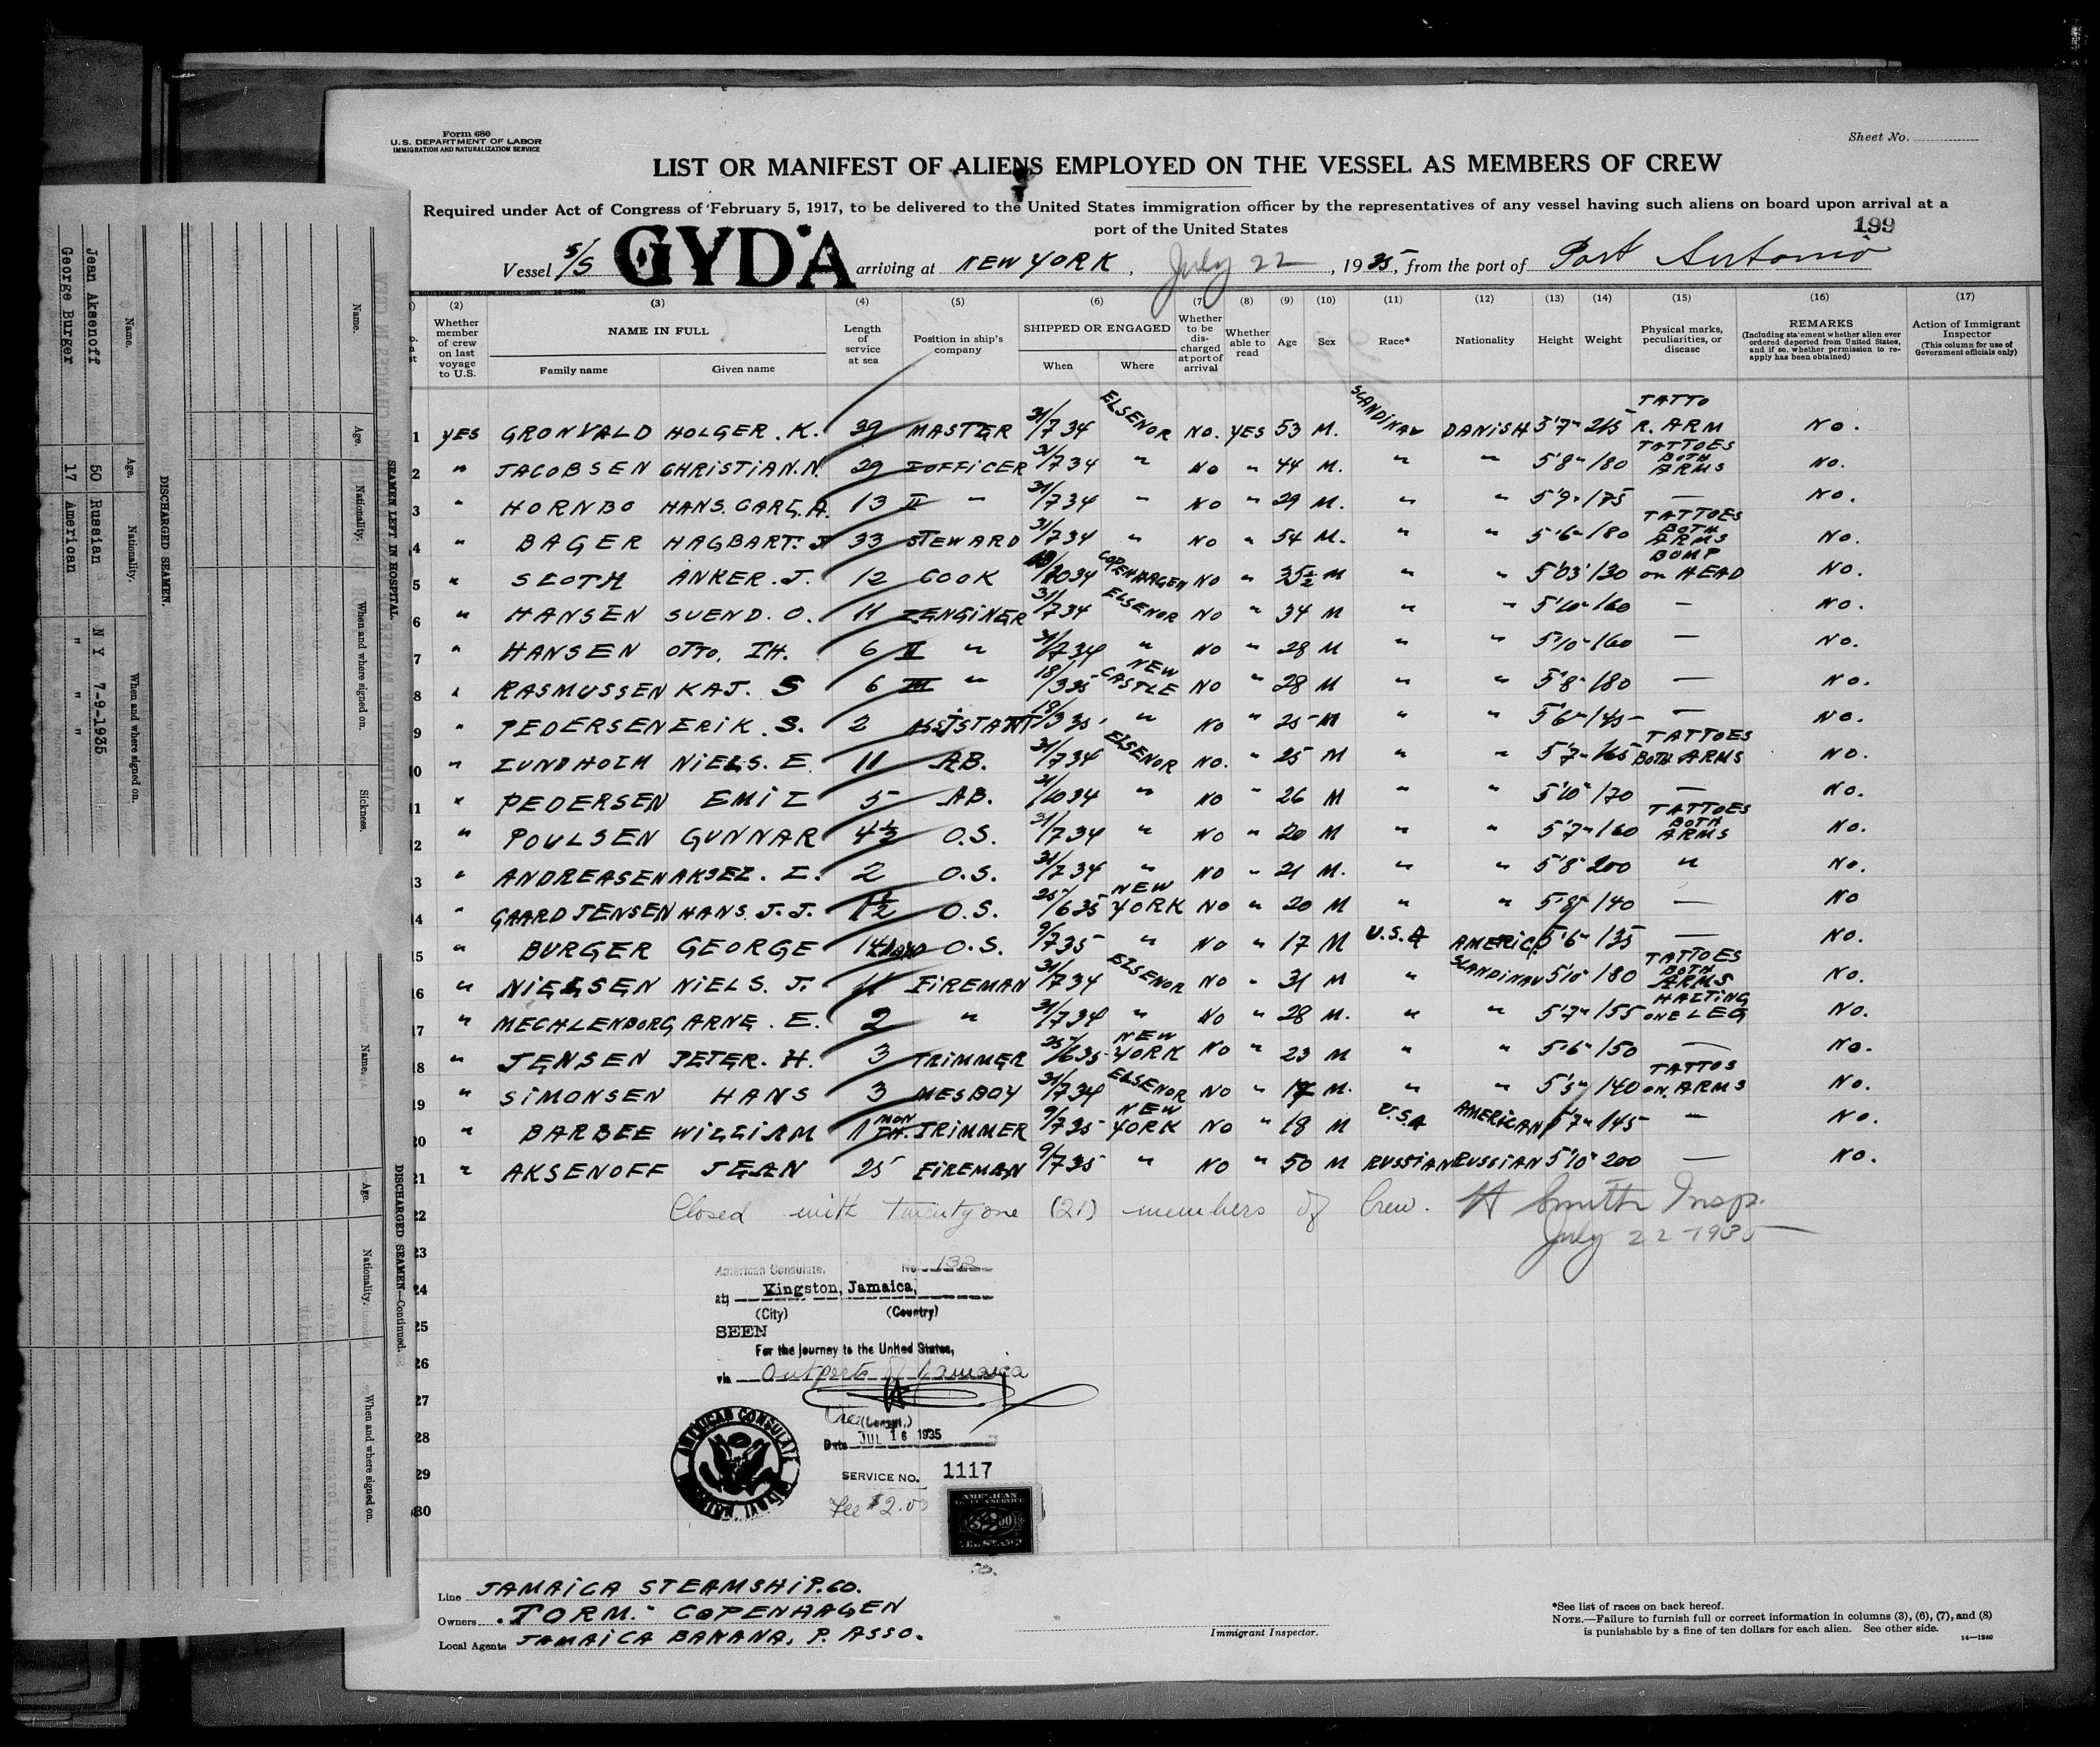 Form 680
U.S. DEPARTMENT OF LABOR
IMMIGRATION AND NATURALIZATION SERVICE
Sheet No.
LIST OR MANIFEST OF ALIENS EMPLOYED ON THE VESSEL AS MEMBERS OF CREW
Required under Act of Congress of February 5, 1917, to be delivered to the United States immigration officer by the representatives of any vessel having such aliens on board upon arrival at a
port of the United States
199
Vessel S/S GYDA arriving at NEW YORK, July 22, 1935, from the port of Port Antonio
(2) (3) (4) (5) (6) (7) (8) (9) (10) (11) (12) (13) (14) (15) (16) (17)
Whether member of crew on last voyage to U.S. NAME IN FULL Family name Given name Length of service at sea Position in ship's company SHIPPED OR ENGAGED When Where Whether to be discharged at port of arrival Whether able to read Age Sex Race* Nationality Height Weight Physical marks, peculiarities, or disease REMARKS (Including statement whether alien ever ordered deported from United States, and if so, whether permission to reapply has been obtained) Action of Immigrant Inspector (This column for use of Government officials only)
1 YES GRONVALD HOLGER. K. 39 MASTER 31/7 34 ELSENOR NO. YES 53 M. SCANDINAV DANISH 5'7" 215 TATTO R. ARM NO.
2 " JACOBSEN CHRISTIAN. N. 29 I OFFICER 31/7 34 " NO " 44 M. " " 5'8" 180 TATTOES BOTH ARMS NO.
3 " HORNBO HANS. CARL. A. 13 II " 31/7 34 " NO " 29 M. " " 5'9" 175 — NO.
4 " BAGER HAGBART. J 33 STEWARD 31/7 34 " NO " 54 M. " " 5'6" 180 TATTOES BOTH ARMS NO.
5 " SLOTH ANKER. J. 12 COOK /10 34 COPENHAGEN NO " 35½ M " " 5'03" 130 BUMP on HEAD NO.
6 " HANSEN SUEND. O. 11 I ENGINER 31/7 34 ELSENOR NO " 34 M " " 5'10" 160 — NO.
7 " HANSEN OTTO. TH. 6 II " 31/7 34 " NO " 28 M " " 5'10" 160 — NO.
8 " RASMUSSEN KAJ. S 6 III " 18/3 35 NEW CASTLE NO " 28 M " " 5'8" 180 — NO.
9 " PEDERSEN ERIK. S. 2 ASSISTANT 18/3 35 " NO " 25 M " " 5'6" 145 — NO.
10 " LUNDHOLM NIELS. E. 11 AB. 31/7 34 ELSENOR NO. " 25 M " " 5'7" 165 TATTOES BOTH ARMS NO.
11 " PEDERSEN EMIL 5 AB. 31/10 34 " NO " 26 M " " 5'10" 170 — NO.
12 " POULSEN GUNNAR 4½ O.S. 31/7 34 " NO " 20 M " " 5'7" 160 TATTOES BOTH ARMS NO.
13 " ANDREASEN AKSEL. L. 2 O.S. 31/7 34 " NO " 21 M. " " 5'8" 200 " NO.
14 " GAARD JENSEN HANS. J. J. 1½ O.S. 25/6 35 NEW YORK NO " 20 M " " 5'8" 140 — NO
15 " BURGER GEORGE 14 O.S. 9/7 35 " NO " 17 M U.S.A AMERIC. 5'6" 135 — NO.
16 " NIELSEN NIELS. J. 11 FIREMAN 31/7 34 ELSENOR NO " 31 M " SCANDINAV 5'10" 180 TATTOES BOTH ARMS NO.
17 " MECHLENBORG ARNE. E. 2 " 31/7 34 " NO " 28 M. " " 5'7" 155 HALTING ONE LEG NO.
18 " JENSEN PETER. H. 3 TRIMMER 25/6 35 NEW YORK NO " 23 M " " 5'6" 150 — NO.
19 " SIMONSEN HANS 3 MESBOY 31/7 34 ELSENOR NO " M. " " 5'5" 140 TATTOS ON. ARMS NO.
20 " BARBEE WILLIAM 1 MONTH. TRIMMER 9/7 35 NEW YORK NO " 18 M U.S.A AMERICAN 5'7" 145 — NO.
21 " AKSENOFF JEAN 25 FIREMAN 9/7 35 " NO " 50 M RUSSIAN RUSSIAN 5'10" 200 — NO.
22 Closed with twenty one (21) members of Crew. H Smith Insp.
July 22-1935
23
24
25
26
27
28
29
30
American Consulate, No. 132
at Kingston, Jamaica,
(City) (Country)
SEEN
For the journey to the United States,
via Outports of Jamaica
(Consul.)
Date JUL 16 1935
AMERICAN CONSULATE
SERVICE NO. 1117
Fee $2.00
Line JAMAICA STEAMSHIP. CO.
Owners "TORM." COPENHAGEN
Local Agents JAMAICA BANANA. P. ASSO.
Immigrant Inspector.
*See list of races on back hereof.
NOTE.—Failure to furnish full or correct information in columns (3), (6), (7), and (8)
is punishable by a fine of ten dollars for each alien. See other side.
14—1240
SEAMEN LEFT IN HOSPITAL
Name. Age. Nationality. When and where signed on. Sickness.
DISCHARGED SEAMEN.
Name. Age. Nationality. When and where signed on.
Jean Aksenoff 50 Russian N Y 7-9-1935
George Burger 17 American " " "
DISCHARGED SEAMEN—Continued.
Name. Age. Nationality. When and where signed on.